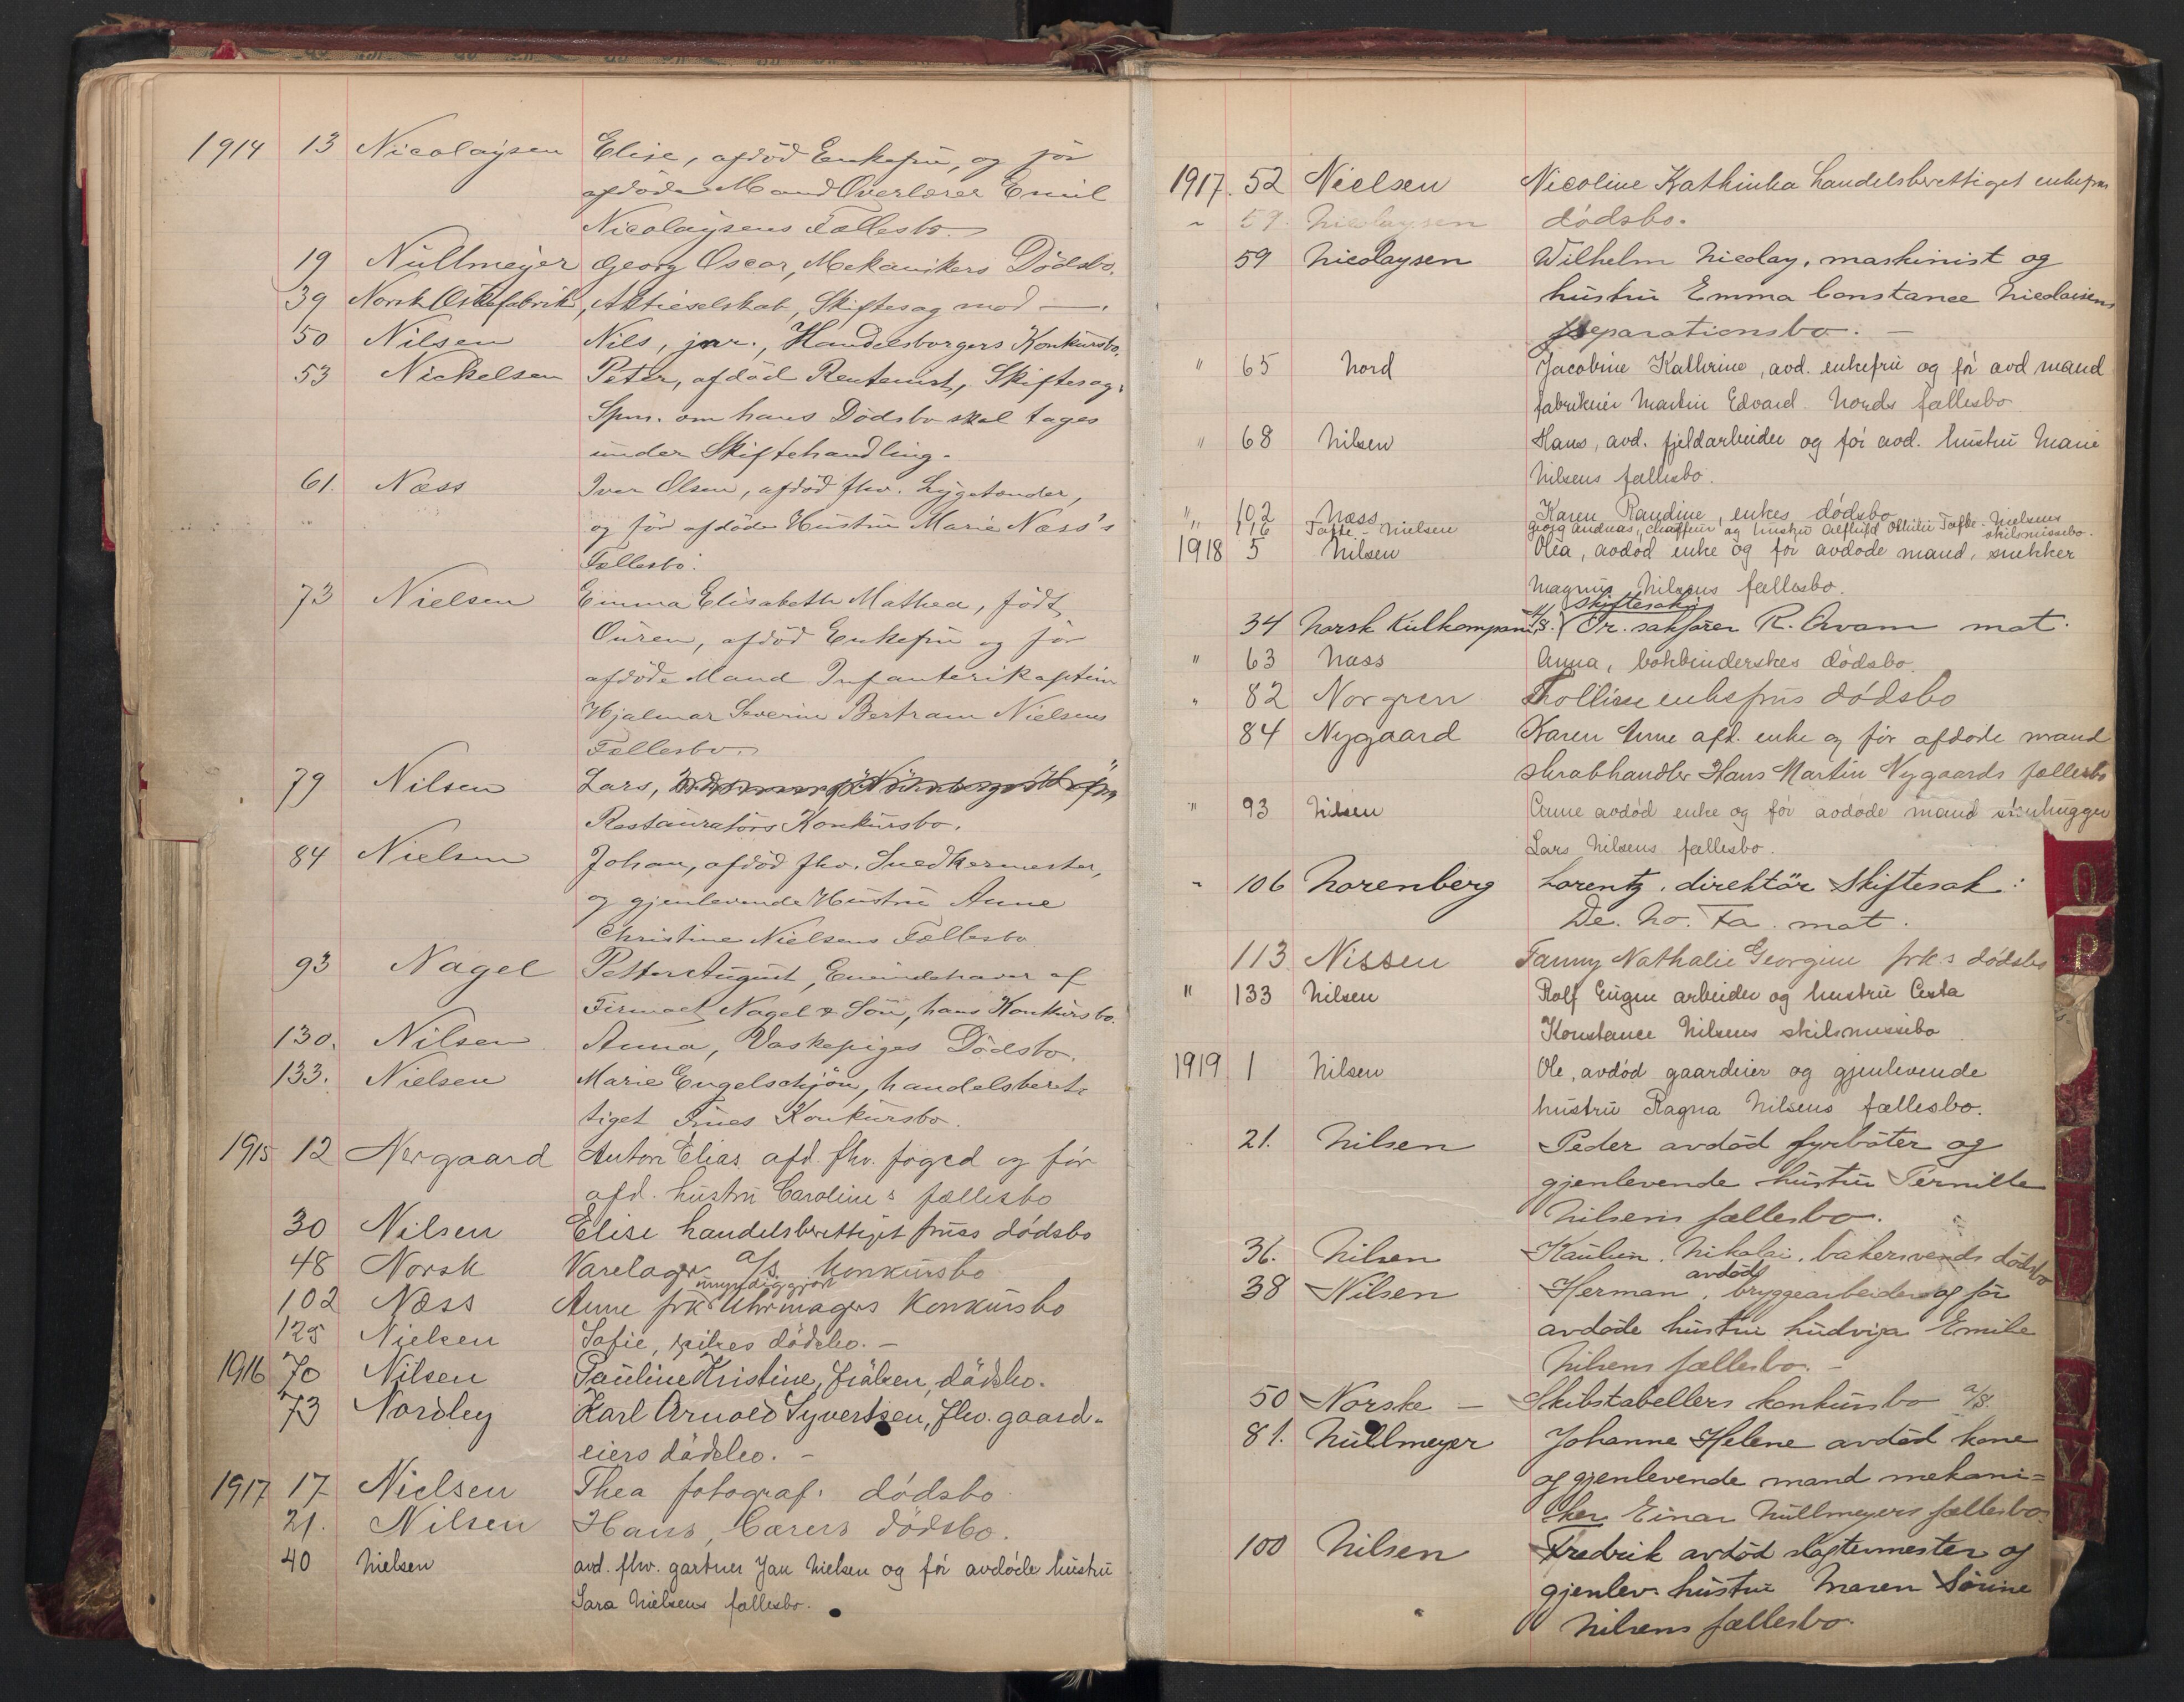 1914 13 Nicolaysen Elise, afdød Enkefru, og før
afdøde Mand Overlærer Emil
Nicolaysens Fællesbo.
19 Nüllmeyer Georg Oscar, Mekanikers Dödsbo.
39 Norsk Æskefabrik, Aktieselskab, Skiftesag mod —.
50 Nilsen Nils, jnr., Handelsborgers Konkursbo.
53 Nickelsen Peter, afdöd Rentenist, Skiftesag.
Spm. om hans Dödsbo skal tages
under Skiftehandling.
61. Næss Iver Olsen, afdöd fhv. Lygetænder,
og för afdöde Hustru Marie Næss's
Fællesbo.
73 Nielsen Emma Elisabeth Mathea, födt
Ouren, afdöd Enkefru og för
afdöde Mand Infanterikaptein
Hjalmar Severin Bertram Nielsens
Fællesbo.
79 Nilsen Lars,
Restauratörs Konkursbo.
84 Nielsen Johan, afdöd fhv. Snedkermester,
og gjenlevende Hustru Anne
Christine Nielsens Fællesbo
93 Nagel Petter August, Eneindehaver af
Firmaet Nagel & Sön, hans Konkursbo.
130. Nilsen Anna, Vaskepiges Dödsbo.
133. Nielsen Marie Engelschjön, handelsberet-
tiget Frues Konkursbo.
1915 12 Nergaard Anton Elias afd. fhv. foged og før
afd. hustru Caroline's fællesbo
30 Nilsen Elise handelsberettiget frues dødsbo
48 Norsk Varelager a/s konkursbo
102 Næss Anne frk umyndiggjort Uhrmagers konkursbo
125 Nielsen Sofie, pikes dödsbo. —
1916 70 Nilsen Pauline Kristine, frøken, dödsbo.
73 Nordley Karl Arnold Syvertsen, fhv. gaard-
eiers dödsbo. —
1917 17 Nielsen Thea fotograf. dødsbo
21. Nilsen Hans, Bærers dødsbo.
40 Nielsen avd. fhv. gartner Jan Nielsen og før avdøde hustru
Sara Nielsens fællesbo.
1917. 52 Nielsen Nicoline Kathinka handelsberettiget enkefrus
" 59. Nicolaysen dödsbo.
59 Nicolaysen Wilhelm Nicolay, maskinist og
hustru Emma Constance Nicolaisens
separationsbo. —
" 65 Nord Jacobine Kathrine, avd. enkefru og før avd mand
fabrikeier Martin Edvard Nords fællesbo
" 68 Nilsen Hans, avd. fjeldarbeider og før avd. hustru Marie
Nilsens fællesbo.
" 102 Næss Karen Randine, enkes dødsbo
" 116 Tofte-Nielsen Georg Andreas, chauffeur og hustru Alfhild Othilie Tofte-Nielsens
skilsmissebo.
1918 5 Nilsen Olea, avdød enke og før avdøde mand, snekker
Magnus Nilsens fællesbo.
34 Norsk Kulkompani A/S. Skiftesak: Or. sakfører R. Hvam mot.
" 63 Næss Anna, bokbinderskes dødsbo.
" 82 Norgren Trolline enkefrus dødsbo
84 Nygaard Karen Anne afd. enke og før afdøde mand
skrabhandler Hans Martin Nygaards fællesbo
" 93 Nilsen Anne avdød enke og før avdøde mand stenhugger
Lars Nilsens fællesbo.
" 106 Norenberg Lorentz, direktör Skiftesak:
De. No. Fa. mot.
113 Nissen Fanny Nathalie Georgine frk.s dødsbo
" 133 Nilsen Rolf Eugen arbeider og hustru Cesta
Konstance Nilsens skilsmissebo
1919 1 Nilsen Ole, avdød gaardeier og gjenlevende
hustru Ragna Nilsens fællesbo.
21. Nilsen Peder avdød fyrbøter og
gjenlevende hustru Pernille
Nilsens fællesbo.
36. Nilsen Nikolai, bakersvends dødsbo
38 Nilsen Herman, avdød bryggearbeider og før
avdøde hustru Hudviga Emilie
Nilsens fællesbo. —
50 Norske — Skibstabellers konkursbo a/s.
81. Nüllmeyer Johanne Helene avdød kone
og gjenlevende mand mekani=
ker Einar Nüllmeyers fællesbo.
100 Nilsen Fredrik avdød slagtermester og
gjenlev. hustru Maren Sörine
Nilsens fællesbo.
O
P
X
Y